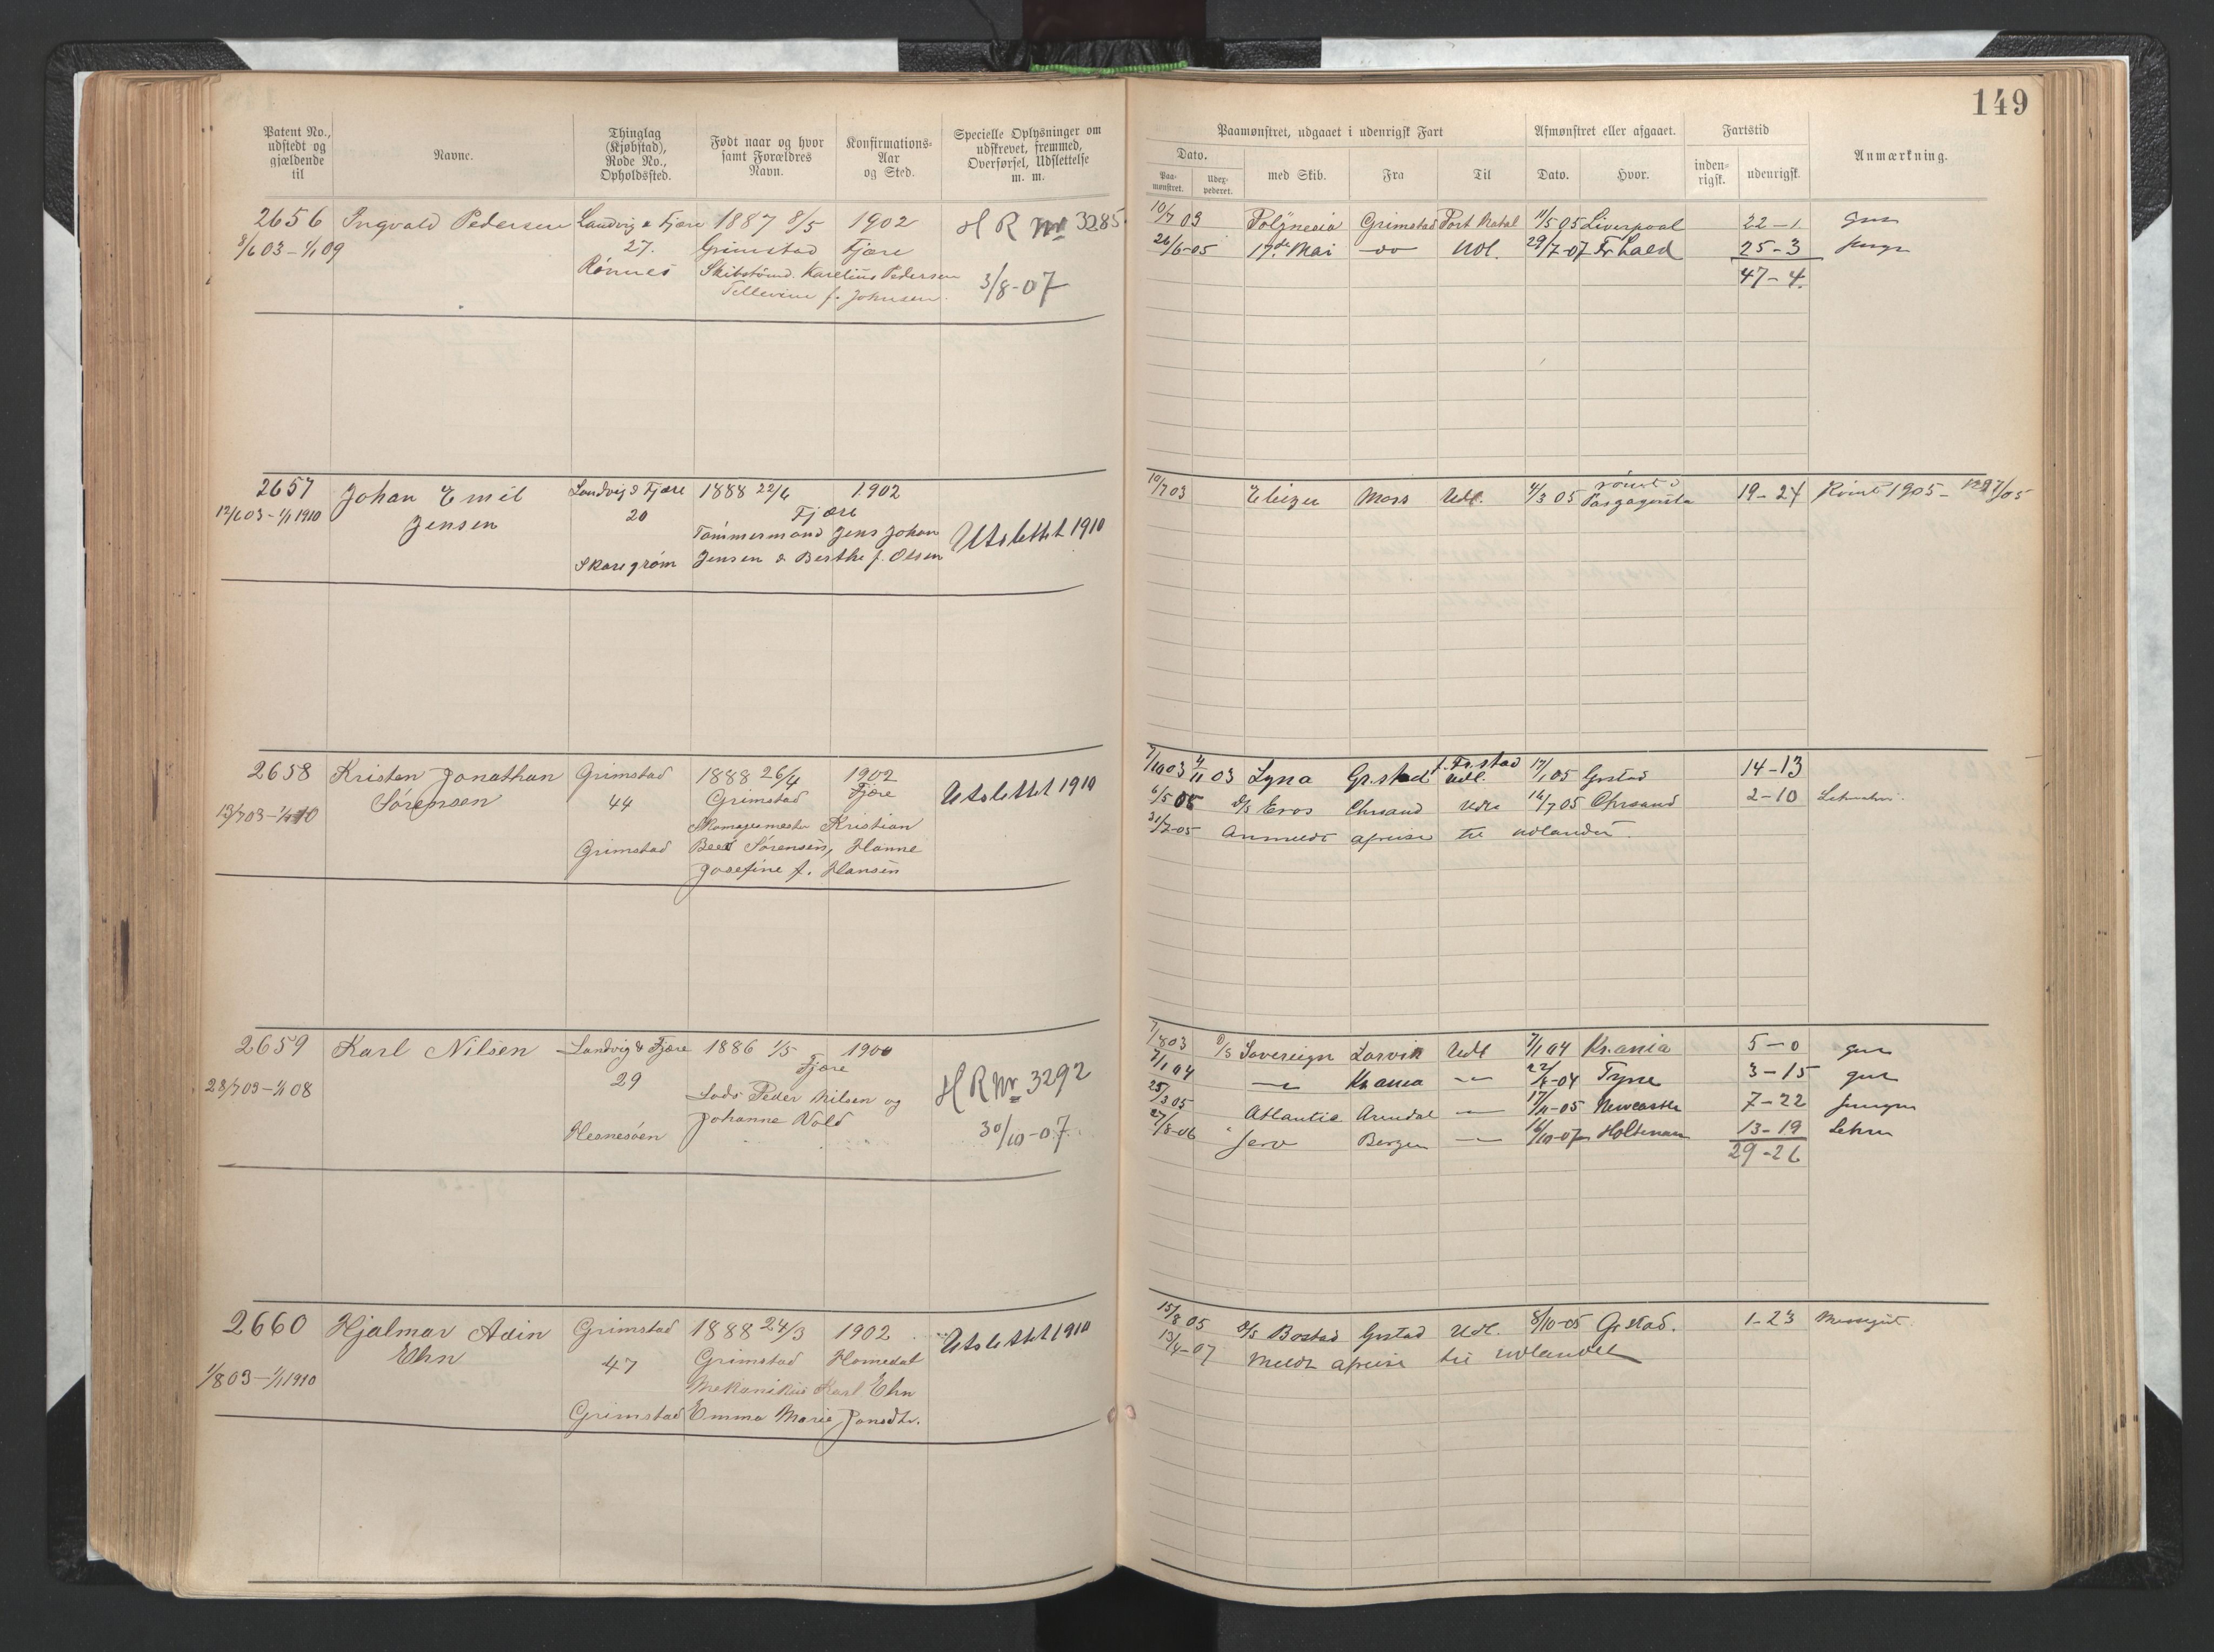 149
Patent No., udstedt og gjældende til
Navne.
Thinglag (Kjøbstad), Rode No., Opholdssted.
Født naar og hvor samt Forældres Navn.
Konfirmations-Aar og Sted.
Specielle Oplysninger om udskrevet, fremmed, Overførsel, Udslettelse m. m.
Paamønstret, udgaaet i udenrigsk Fart
Dato.
Paa-mønstret.
Udex-pederet.
med Skib.
Fra
Til
Afmønstret eller afgaaet.
Dato.
Hvor.
Fartstid
inden-rigsk.
udenrigsk.
Anmærkning.
2656 Ingvald Pedersen Landvig & Fjære 1887 8/5 1902 H R Nr 3285
8/6 03 – 1/1 09 27. Grimstad Fjære
Rønnes Skibstømd. Karelius Pedersen
Tellevine f. Johnsen. 3/8-07
10/7 03 Polÿnesia Grimstad Port Natal 11/5 05 Liverpool 22 – 1
26/6-05 17de Mai –do– Udl. 29/7-07 Fr hald 25 – 3
47 – 4.
2657 Johan Emil Landvig & Fjære 1888 22/6 1902
12/6 03 – 1/1 1910 Jensen 20 Fjære
Tømmermand Jens Johan Utslettet 1910
Skaregrøm Jensen & Berthe f. Olsen
10/7 03 Eliezer Moss Udl. 4/3 05 rømt i Pasgagoula 19 – 24 Rømt 1905 –
2658 Kristen Jonathan Grimstad 1888 26/4 1902 Utslettet 1910
Sørensen 44 Grimstad Fjære
13/7 03 – 1/1 10 Skomagermester Kristian
Grimstad Sørensen, Hanne
Josefine f. Hansen
7/10 03 4/11 03 Lyna Gr.stad f. Fr.stad Udl. 17/1 05 Grstad 14 – 13
6/5 05 D/S Eros Chrsand Udl. 16/7 05 Chrsand 2 – 10
31/7-05 Anmeldt afreise til udlandet.
2659 Karl Nilsen Landvig & Fjære 1886 1/5 1900
28/7 03 – 1/1 08 29 Fjære H R Nr 3292
Lods Peder Nilsen og
Hesnesøen Johanne Vold 30/10-07.
1/8 03 D/S Sovereign Larvik Udl 7/1 04 Kr.ania 5 – 0 gut
7/1 04 –"– Krania –"– 22/4-04 Tyne 3 – 15 gut
25/3 05 Atlantic Arendal –"– 17/11-05 Newcastle 7 – 22
27/8-06 Bergen –"– 16/10-07 Holtenau 13 – 19
29 – 26
2660 Hjalmar Adin Grimstad 1888 24/3 1902 Utslettet 1910
Ehn 47 Grimstad Homedal
1/8 03 – 1/1 1910 Mekanikus Karl Ehn
Grimstad Emma Marie Jonsdtr.
15/8 05 D/S Bastad Grstad Udl. 8/10-05 Gr.stad. 1 – 23 Messegut.
13/4-07 Meldt afreise til udlandet